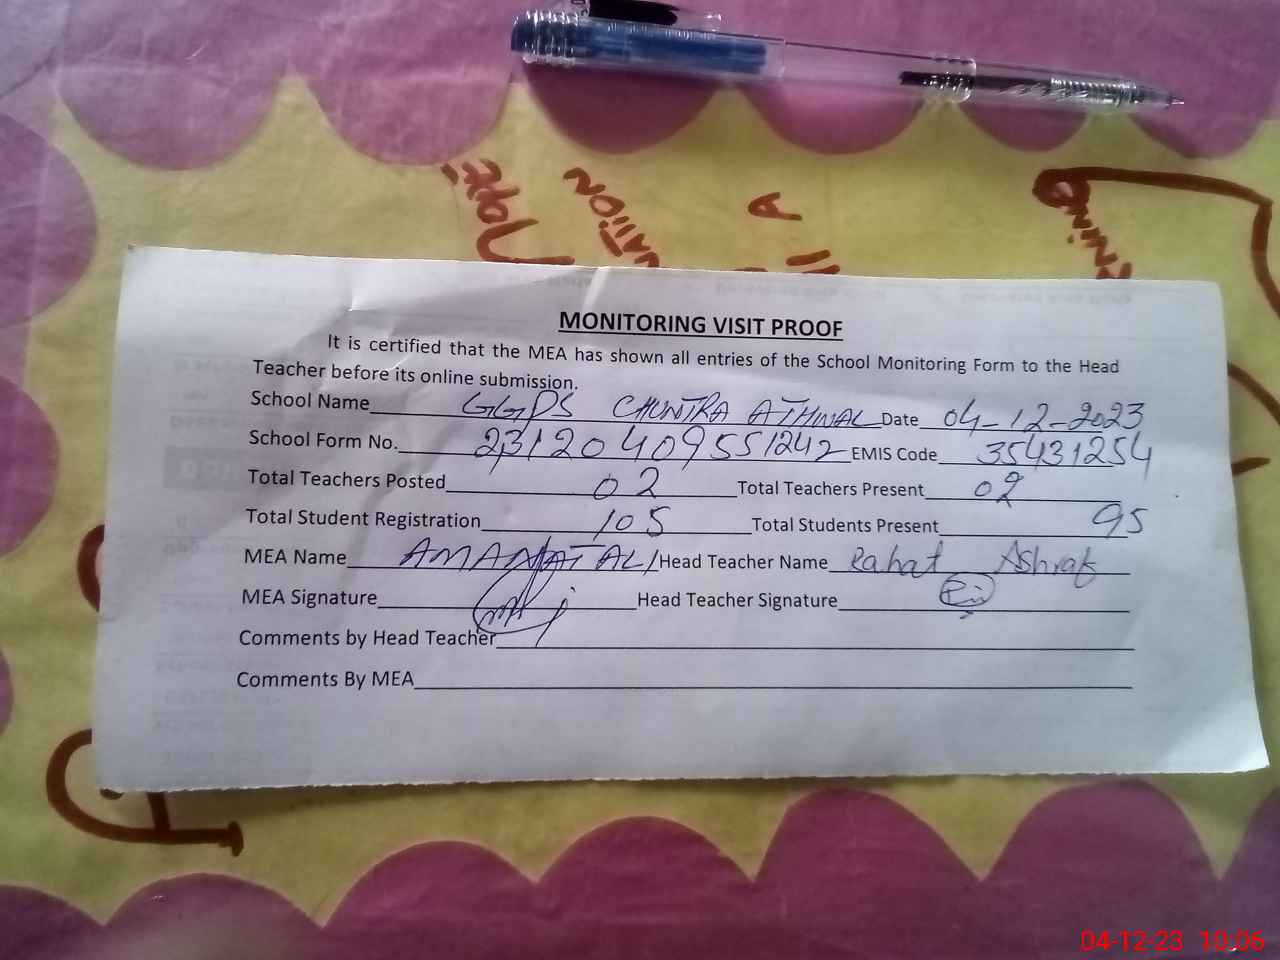 MONITORING VISIT PROOF
It is certified that the MEA has shown all entries of the School Monitoring Form to the Head
Teacher before its online submission.
School Name GGPS CHUNTRA ATHWAL Date 04-12-2023
School Form No. 231204095551242 EMIS Code 35431254
Total Teachers Posted 02 Total Teachers Present 02
Total Student Registration 105 Total Students Present 95
MEA Name AMANAT ALI Head Teacher Name Rahat Ashraf
MEA Signature Head Teacher Signature
Comments by Head Teacher
Comments By MEA
04-12-23 10:06